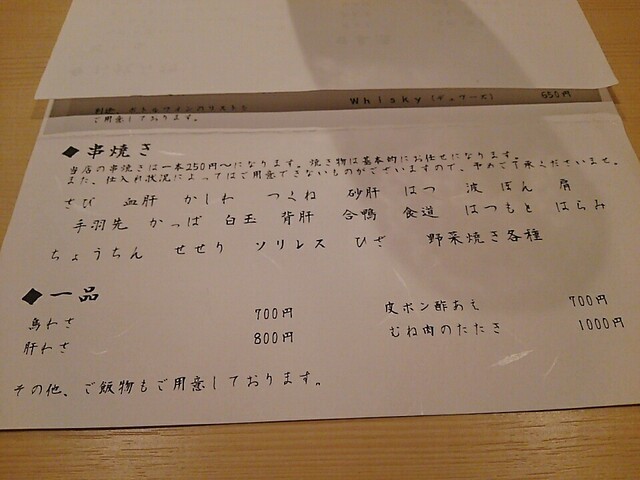 別途、ボトルワインのリストも
ご用意しております。
Whisky(デュワーズ) 650円
◆串焼き
当店の串焼きは一本250円〜になります。焼き物は基本的にお任せになります。
また、仕入れ状況によってはご用意できないものがございますので、予めご了承くださいませ。
さび 血肝 かしわ つくね 砂肝 はつ 波 ぼん 肩
手羽先 かっぱ 白玉 背肝 合鴨 食道 はつもと はらみ
ちょうちん せせり ソリレス ひざ 野菜焼き各種
◆一品
鳥わさ 700円 皮ポン酢あえ 700円
肝わさ 800円 むね肉のたたき 1000円
その他、ご飯物もご用意しております。